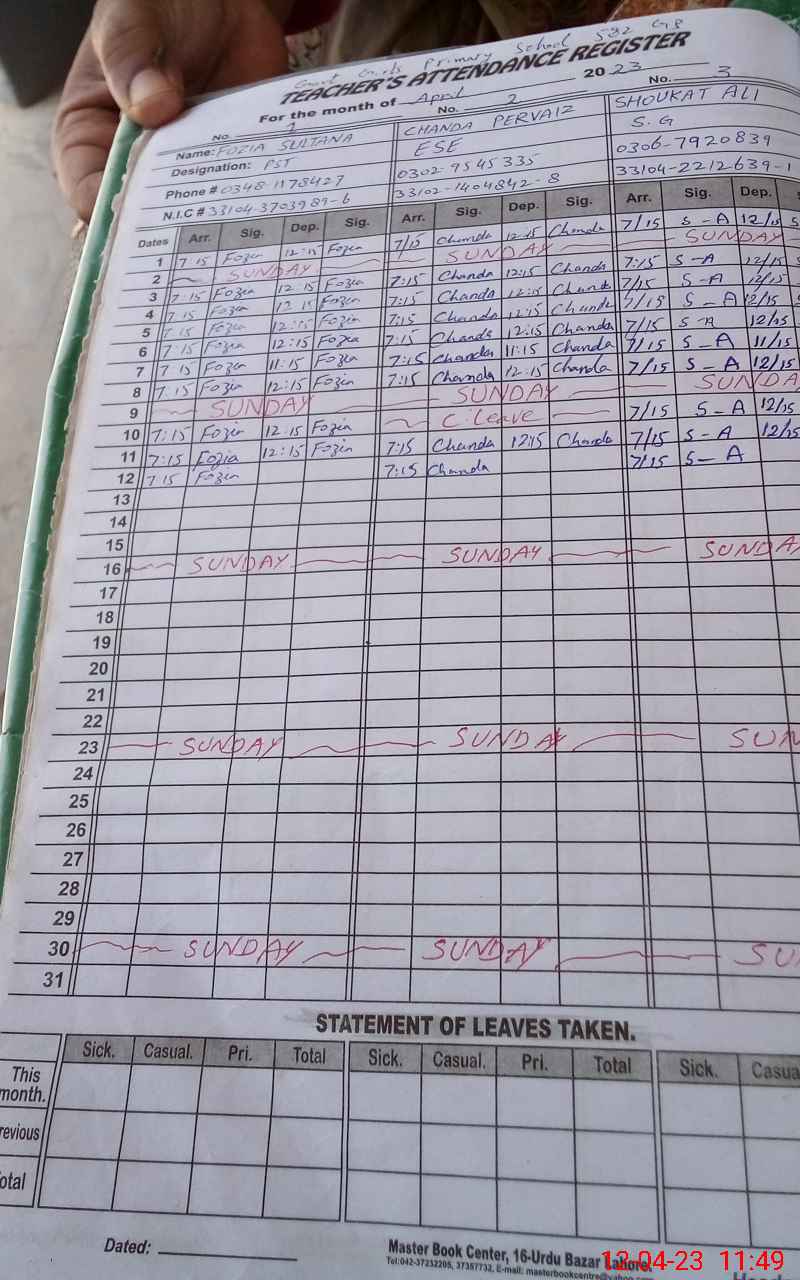 Govt Girls Primary School 582 GB
TEACHER'S ATTENDANCE REGISTER
For the month of April 2023
No. 1 No. 2 No. 3
Name: FOZIA SULTANA CHANDA PERVAIZ SHOUKAT ALI
Designation: PST ESE S.G
Phone # 0348-1178427 0302-9545335 0306-7920839
N.I.C # 33104-3703989-6 33102-1404842-8 33104-2212639-1
Dates Arr. Sig. Dep. Sig. Arr. Sig. Dep. Sig. Arr. Sig. Dep. S
1 7 15 Fozia 12:15 Fozia 7/15 Chanda 12:15 Chanda 7/15 S-A 12/15 S
2 SUNDAY SUNDAY SUNDAY
3 7:15 Fozia 12:15 Fozia 7:15 Chanda 12:15 Chanda 7:15 S-A 12/15
4 7 15 Fozia 12 15 Fozia 7:15 Chanda 12:15 Chanda 7/15 S-A 12/15
5 7 15 Fozia 12:15 Fozia 7:15 Chanda 12:15 Chanda 7/15 S-A 12/15
6 7:15 Fozia 12:15 Fozia 7:15 Chanda 12:15 Chanda 7/15 S-A 12/15
7 7 15 Fozia 11:15 Fozia 7:15 Chanda 11:15 Chanda 7/15 S-A 11/15
8 7:15 Fozia 12:15 Fozia 7:15 Chanda 12:15 Chanda 7/15 S-A 12/15
9 SUNDAY SUNDAY SUNDA
10 7:15 Fozia 12:15 Fozia C.leave 7/15 S-A 12/15
11 7:15 Fozia 12:15 Fozia 7:15 Chanda 12:15 Chanda 7/15 S-A 12/15
12 7 15 Fozia 7:15 Chanda 7/15 S-A
13
14
15
16 SUNDAY SUNDAY SUNDA
17
18
19
20
21
22
23 SUNDAY SUNDAY SUN
24
25
26
27
28
29
30 SUNDAY SUNDAY SU
31
STATEMENT OF LEAVES TAKEN.
Sick. Casual. Pri. Total Sick. Casual. Pri. Total Sick. Casua
This month.
revious
otal
Dated:
Master Book Center, 16-Urdu Bazar Lahore.
Tel:042-37232205, 37357732, E-mail: masterbookcentre@yahoo
12-04-23 11:49